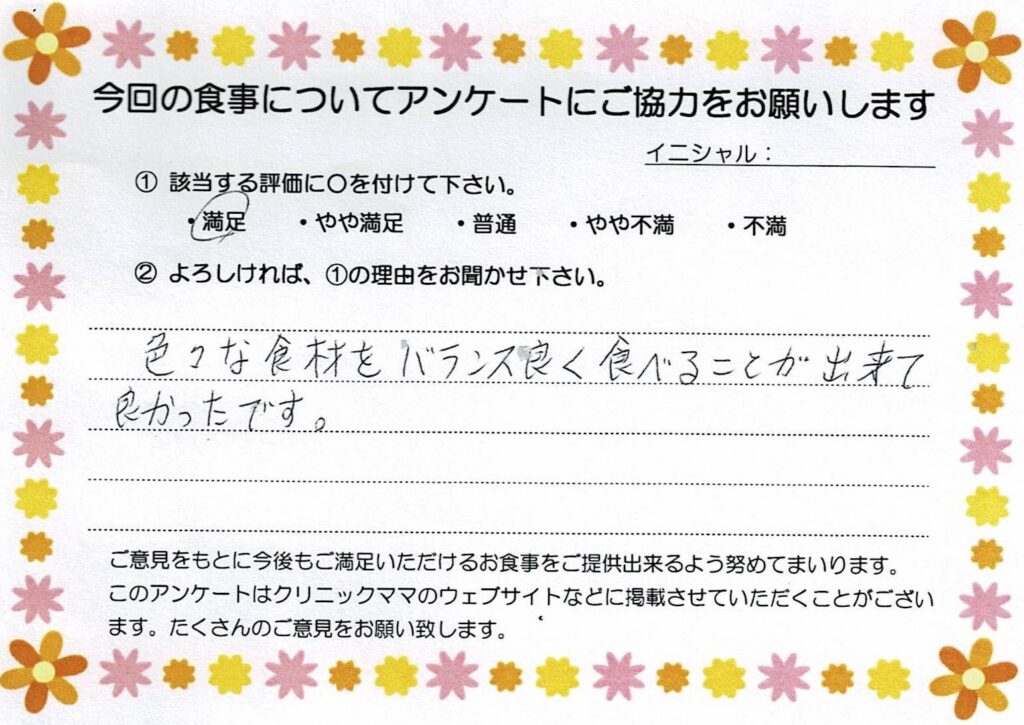 今回の食事についてアンケートにご協力をお願いします
イニシャル：
① 該当する評価に〇を付けて下さい。
・満足 ・やや満足 ・普通 ・やや不満 ・不満
② よろしければ、①の理由をお聞かせ下さい。
色々な食材をバランス良く食べることが出来て
良かったです。
ご意見をもとに今後もご満足いただけるお食事をご提供出来るよう努めてまいります。
このアンケートはクリニックママのウェブサイトなどに掲載させていただくことがござい
ます。たくさんのご意見をお願い致します。